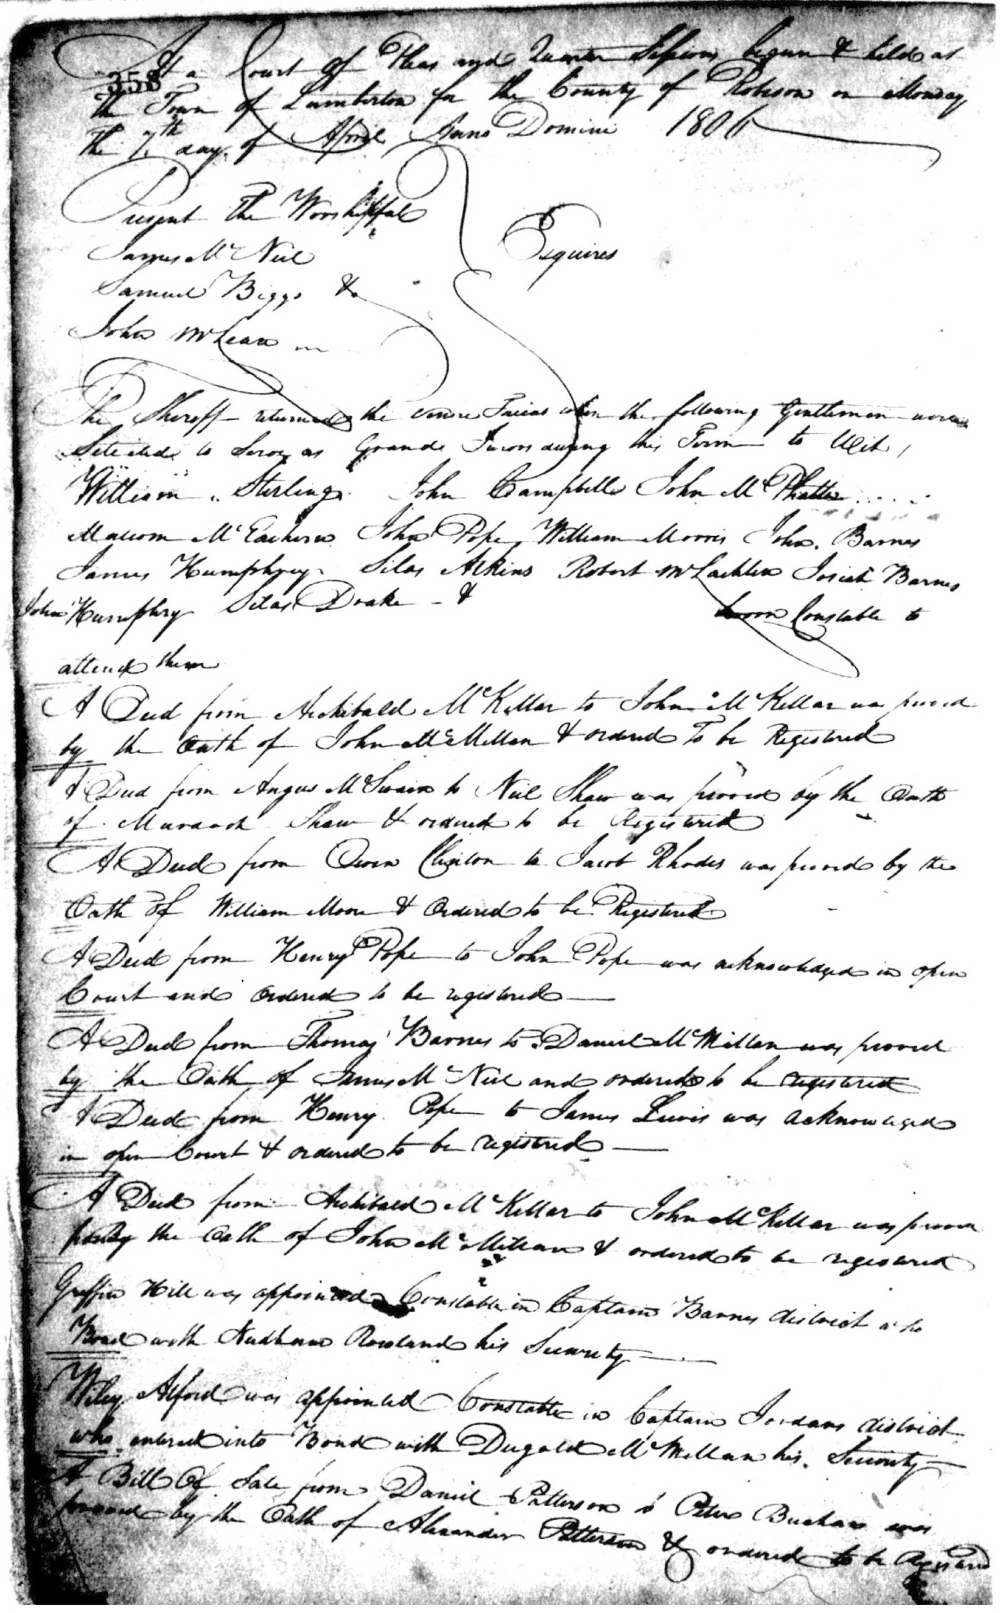 358
At a Court of Pleas and Quarter Sessions begun & held at
the Town of Lumberton for the County of Robeson on Monday
the 7th day of April Anno Domini 1806
Present the Worshipful
James McNeil
Samuel Biggs &
Esquires
John McLean
The Sheriff returned the venire Facias when the following Gentlemen were
Selected to Serve as Grand Jurors during this Term to Wit,
William Sterling John Campbell John McPhatter
Malcom McEachern John Pope William Morris John Barnes
James Humphrey Silas Atkins Robert McLachlin Josiah Barnes
John Humphry Silas Drake &
Sworn Constable to
attend them
A Deed from Archibald McKellar to John McKellar was proved
by the Oath of John McMillan & ordered To be Registered
A Deed from Angus McSwain to Neil Shaw was proved by the Oath
of Murdoch Shaw & ordered to be Registered
A Deed from Owen Clinton to Jacob Rhodes was proved by the
Oath of William Moore & Ordered to be Registered
A Deed from Henry Pope to John Pope was acknowledged in open
Court and ordered to be registered
A Deed from Thomas Barnes to Daniel McMillan was proved
by the Oath of James McNeil and ordered to be registered
A Deed from Henry Pope to James Lewis was acknowleged
in open Court & ordered to be registered
A Deed from Archibald McKellar to John McKellar was proven
by the Oath of John McMillan & ordered to be registered
Griffin Hill was appointed Constable in Captain Barnes district who
Bond with Nudham Rowland his Security
Wiley Alford was appointed Constable in Captain Jordans district
who entered into Bond with Dugald McMillan his Security
A Bill Of Sale from Daniel Patterson to Peter Buchan was
proved by the Oath of Alexander Patterson & ordered to be Registered